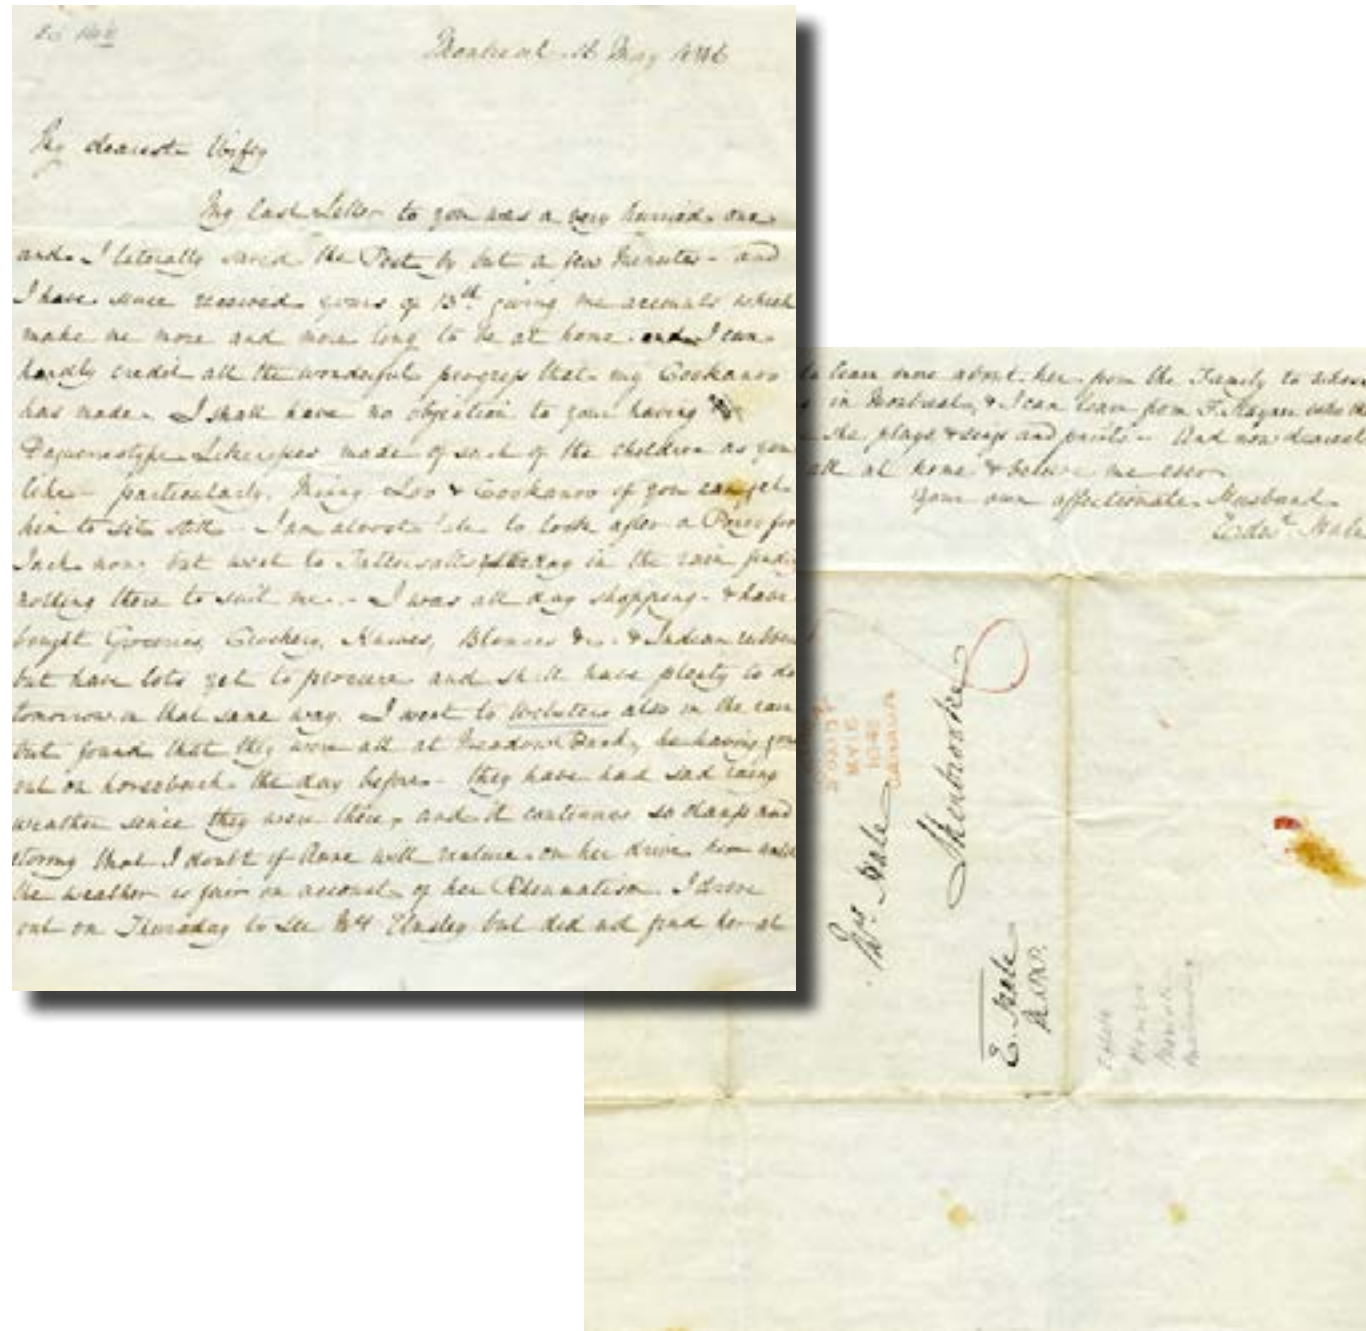 Montreal 16 May 1846
My dearest Wify
My last Letter to you was a very hurried one
and I literally saved the Post by but a few Minutes - and
I have since received yours of 13th giving me accounts which
make me more and more long to be at home and I can
hardly credit all the wonderful progress that my Cookanoo
has made. I shall have no objection to your having
Daguereotype Likenesses made of such of the children as you
like - particularly Minny Loo & Cookanoo if you can get
him to sit still - I am almost late to look after a Poney for
Jack now but went to Tattersalls yesterday in the rain finding
nothing there to suit me. - I was all day shopping - & have
bought Groceries, Crockery, Knives, &c. & Indian rubber
but have lots yet to procure and shall have plenty to do
tomorrow in that same way. I went to Websters also in the rain
but found that they were all at Meadow Bank, he having
out on horseback the day before - they have had sad rainy
weather since they were there, and it continues so damp and
stormy that I doubt if Anne will venture on her drive home until
the weather is fair on account of her Rheumatism. I drove
out on Thursday to see Mrs Elmsley but did not find her at
to learn more about her from the Family to whom
in Montreal, & I can learn from T. Kayner
she plays & sings and paints - And now dearest
all at home & believe me ever
Your own affectionate Husband
Edwd Hale
MY 16
1846
CANADA
Mrs Hale
Sherbrooke
E. Hale
M.P.P.